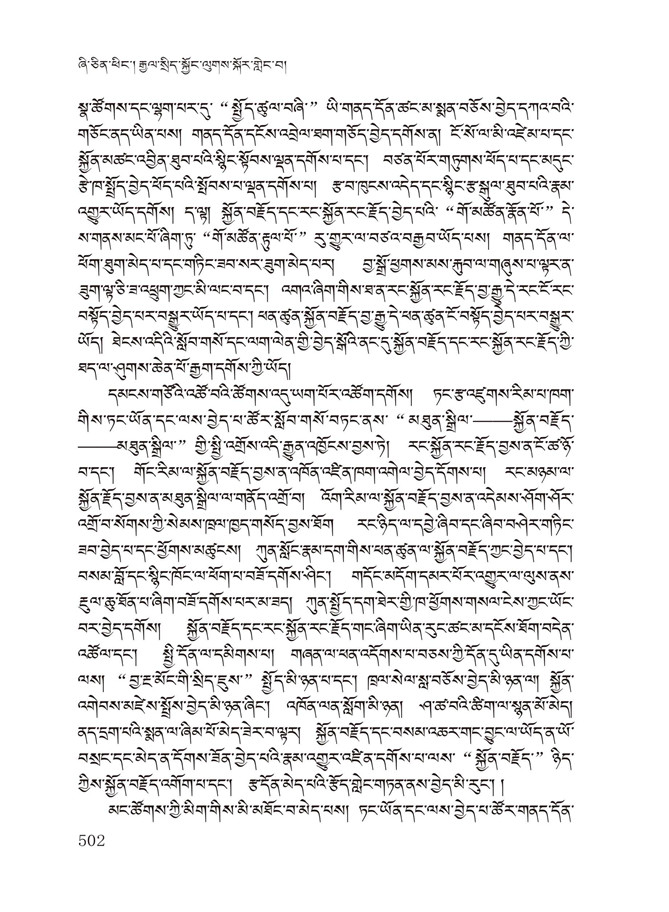 ཞི་ཅིན་ཕིང་། རྒྱལ་སྲིད་སྐྱོང་ལུགས་སྐོར་གླེང་བ།
སྣ་ཚོགས་དང་ལྷག་པར་དུ་ “སྤྱོད་ཚུལ་བཞི་” ཡི་གནད་དོན་ཚང་མ་སྨན་བཅོས་བྱེད་དཀའ་བའི་
གཅོང་ནད་ཡིན་པས། གནད་དོན་དངོས་འབྲེལ་ཐག་གཅོད་བྱེད་དགོས་ན། ངོ་སོ་ལ་མི་འཛེམ་པ་དང་
སྐྱོན་མཚང་འབྱིན་ཐུབ་པའི་སྙིང་སྟོབས་ལྡན་དགོས་པ་དང་། བཙན་པོར་གཏུགས་ཕོད་པ་དང་མདུང་
རྩེ་ཁ་སྤྲོད་བྱེད་ཕོད་པའི་སྤོབས་པ་ལྡན་དགོས་པ། རྩ་བ་ཁུངས་འདེད་དང་སྙིང་རྩ་སྐུལ་ཐུབ་པའི་རྣམ་
འགྱུར་ཡོད་དགོས། ད་ལྟ། སྐྱོན་བརྗོད་དང་རང་སྐྱོན་རང་རྗོད་བྱེད་པའི་ “གོ་མཚོན་རྣོན་པོ་” དེ་
ས་གནས་མང་པོ་ཞིག་ཏུ་ “གོ་མཚོན་རྟུལ་པོ་” རུ་གྱུར་ལ་བཙའ་བརྒྱབ་ཡོད་པས། གནད་དོན་ལ་
ཕོག་ཐུག་མེད་པ་དང་གཏིང་ཟབ་སར་ཟུག་མེད་པར། བྱ་སྒྲོ་ཕྱགས་མས་རྐུབ་ལ་གཞུས་པ་ལྟར་ན་
ཟུག་ལྟ་ཅི་ཟ་འཕྲུག་ཀྱང་མི་ལང་བ་དང་། འགའ་ཞིག་གིས་ཐ་ན་རང་སྐྱོན་རང་རྗོད་བྱ་རྒྱུ་དེ་རང་ངོ་རང་
བསྟོད་བྱེད་པར་བསྒྱུར་ཡོད་པ་དང་། ཕན་ཚུན་སྐྱོན་བརྗོད་བྱ་རྒྱུ་དེ་ཕན་ཚུན་ངོ་བསྟོད་བྱེད་པར་བསྒྱུར་
ཡོད། ཐེངས་འདིའི་སློབ་གསོ་དང་ལག་ལེན་གྱི་བྱེད་སྒོའི་ནང་དུ་སྐྱོན་བརྗོད་དང་རང་སྐྱོན་རང་རྗོད་ཀྱི་
ཐད་ལ་ཤུགས་ཆེན་པོ་རྒྱག་དགོས་ཀྱི་ཡོད།
དམངས་གཙོའི་འཚོ་བའི་ཚོགས་འདུ་ཡག་པོར་འཚོག་དགོས། ཏང་རྩ་འཛུགས་རིམ་པ་ཁག་
གིས་ཏང་ཡོན་དང་ལས་བྱེད་པ་ཚོར་སློབ་གསོ་བཏང་ནས་ “མཐུན་སྒྲིལ་——སྐྱོན་བརྗོད་
——མཐུན་སྒྲིལ་” གྱི་སྤྱི་འགྲོས་འདི་རྒྱུན་འཁྱོངས་བྱས་ཏེ། རང་སྐྱོན་རང་རྗོད་བྱས་ན་ངོ་ཚ་ཉོ་
བ་དང་། གོང་རིམ་ལ་སྐྱོན་བརྗོད་བྱས་ན་འཁོན་འཛིན་ཁག་འགེལ་བྱེད་དོགས་པ། རང་མཉམ་ལ་
སྐྱོན་རྗོད་བྱས་ན་མཐུན་སྒྲིལ་ལ་གནོད་འགྲོ་བ། འོག་རིམ་ལ་སྐྱོན་བརྗོད་བྱས་ན་འདེམས་ཤོག་ཤོར་
འགྲོ་བ་སོགས་ཀྱི་སེམས་ཁྲལ་ཁྱད་གསོད་བྱས་ཐོག རང་ཉིད་ལ་དབྱེ་ཞིབ་དང་ཞིབ་བཤེར་གཏིང་
ཟབ་བྱེད་པ་དང་ཕྱོགས་མཚུངས། ཀུན་སློང་རྣམ་དག་གིས་ཕན་ཚུན་ལ་སྐྱོན་བརྗོད་ཀྱང་བྱེད་པ་དང་།
བསམ་བློ་དང་སྙིང་ཁོང་ལ་ཕོག་པ་བཟོ་དགོས་ཤིང་། གདོང་མདོག་དམར་པོར་འགྱུར་ལ་ལུས་ནས་
རྔུལ་ཆུ་ཐོན་པ་ཞིག་བཟོ་དགོས་པར་མ་ཟད། ཀུན་སྤྱོད་དག་ཐེར་གྱི་ཁ་ཕྱོགས་གསལ་ངེས་ཀྱང་ཡོང་
བར་བྱེད་དགོས། སྐྱོན་བརྗོད་དང་རང་སྐྱོན་རང་རྗོད་གང་ཞིག་ཡིན་རུང་ཚང་མ་དངོས་ཐོག་བདེན་
འཚོལ་དང་། སྤྱི་དོན་ལ་དམིགས་པ། གཞན་ལ་ཕན་འདོགས་པ་བཅས་ཀྱི་དོན་དུ་ཡིན་དགོས་པ་
ལས། “བྱ་ཇ་མོང་གི་སྲིད་ཇུས་” སྤྱོད་མི་ཉན་པ་དང་། ཁྲལ་སེལ་སླ་བཅོས་བྱེད་མི་ཉན་ལ། སྐྱོན་
འགེབས་མཛེས་སྤྲོས་བྱེད་མི་ཉན་ཞིང་། འཁོན་ལན་སློག་མི་ཉན། ཤ་ཚ་བའི་ཚིག་ལ་སྙན་མོ་མེད།
ནད་དྲག་པའི་སྨན་ལ་ཞིམ་པོ་མེད་ཟེར་བ་ལྟར། སྐྱོན་བརྗོད་དང་བསམ་འཆར་གང་བྱུང་ལ་ཡོད་ན་ཡོ་
བསྲང་དང་མེད་ན་དོགས་ཟོན་བྱེད་པའི་རྣམ་འགྱུར་འཛིན་དགོས་པ་ལས་ “སྐྱོན་བརྗོད་” ཉིད་
ཀྱིས་སྐྱོན་བརྗོད་འགོག་པ་དང་། རྩ་དོན་མེད་པའི་རྩོད་གླེང་གཏན་ནས་བྱེད་མི་རུང་། །
མང་ཚོགས་ཀྱི་མིག་གིས་མི་མཐོང་བ་མེད་པས། ཏང་ཡོན་དང་ལས་བྱེད་པ་ཚོར་གནད་དོན་
502